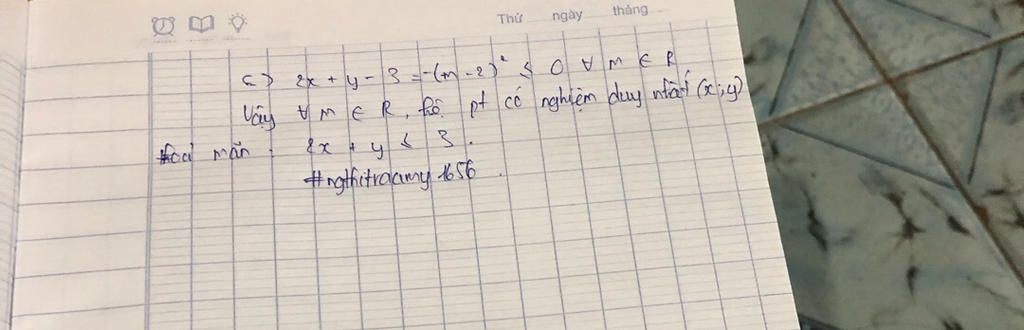 Thứ ngày tháng
<=> 2x + y - 3 = -(m - 2)² ≤ 0 ∀ m ∈ R
Vậy ∀ m ∈ R, hệ pt có nghiệm duy nhất (x; y)
thoả mãn: 2x + y ≤ 3.
#ngthitraamy1656.